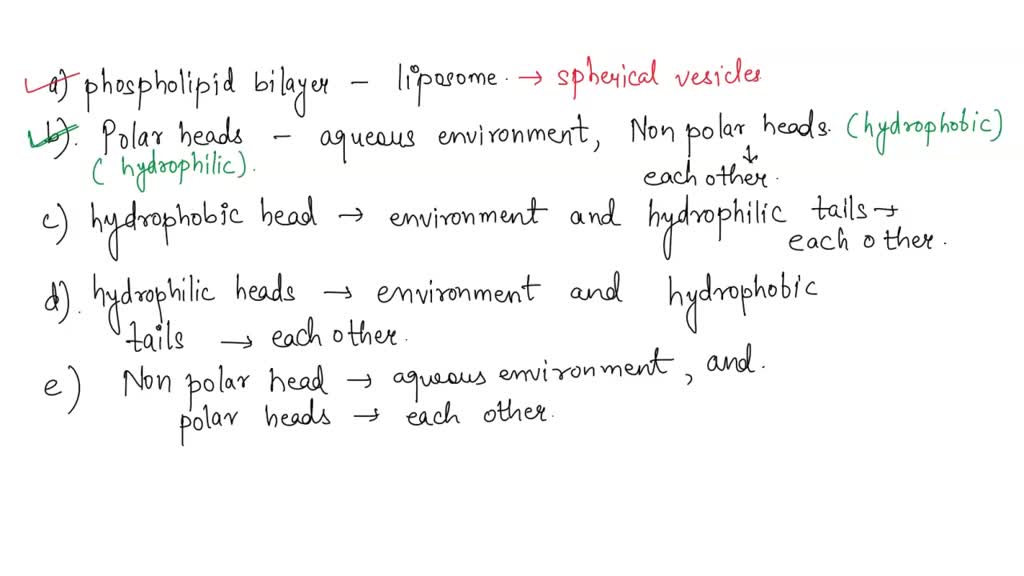 a) phospholipid bilayer – liposome. → spherical vesicles
b). Polar heads – aqueous environment, Non polar heads. (hydrophobic)
(hydrophilic). ↓
each other.
c) hydrophobic head → environment and hydrophilic tails →
each other.
d). hydrophilic heads → environment and hydrophobic
tails → each other.
e) Non polar head → aqueous environment, and.
polar heads → each other.